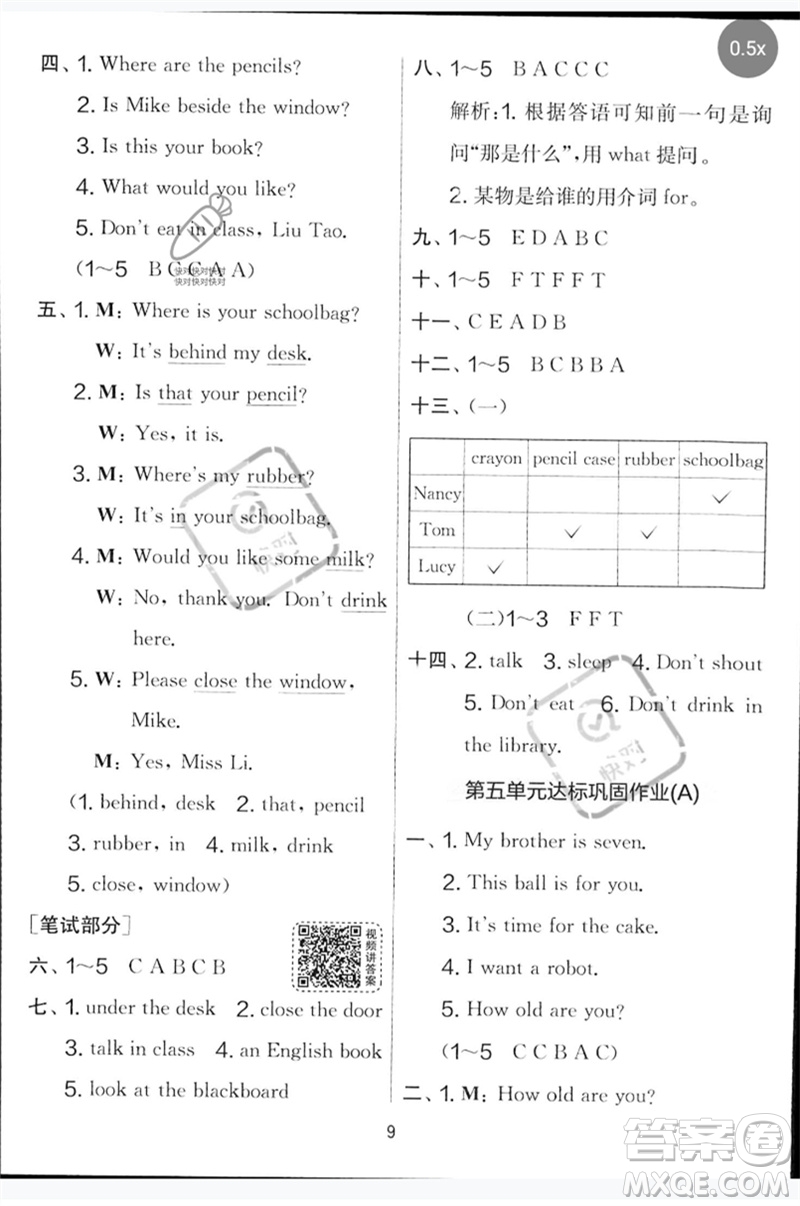 0.5x
四、1. Where are the pencils?
2. Is Mike beside the window?
3. Is this your book?
4. What would you like?
5. Don't eat in class, Liu Tao.
(1～5 B C C A A)
快对快对快对
快对快对快对
五、1. M: Where is your schoolbag?
W: It's behind my desk.
2. M: Is that your pencil?
W: Yes, it is.
3. M: Where's my rubber?
W: It's in your schoolbag.
4. M: Would you like some milk?
W: No, thank you. Don't drink
here.
5. W: Please close the window,
Mike.
M: Yes, Miss Li.
(1. behind, desk 2. that, pencil
3. rubber, in 4. milk, drink
5. close, window)
[笔试部分]
视频讲答案
六、1～5 C A B C B
七、1. under the desk 2. close the door
3. talk in class 4. an English book
5. look at the blackboard
八、1～5 B A C C C
解析:1. 根据答语可知前一句是询
问“那是什么”,用 what 提问。
2. 某物是给谁的用介词 for。
九、1～5 E D A B C
十、1～5 F T F F T
十一、C E A D B
十二、1～5 B C B B A
十三、(一)
crayon pencil case rubber schoolbag
Nancy ✓
Tom ✓ ✓
Lucy ✓
(二)1～3 F F T
十四、2. talk 3. sleep 4. Don't shout
5. Don't eat 6. Don't drink in
the library.
第五单元达标巩固作业(A)
一、1. My brother is seven.
2. This ball is for you.
3. It's time for the cake.
4. I want a robot.
5. How old are you?
(1～5 C C B A C)
二、1. M: How old are you?
9
答案圈
MXQE.COM